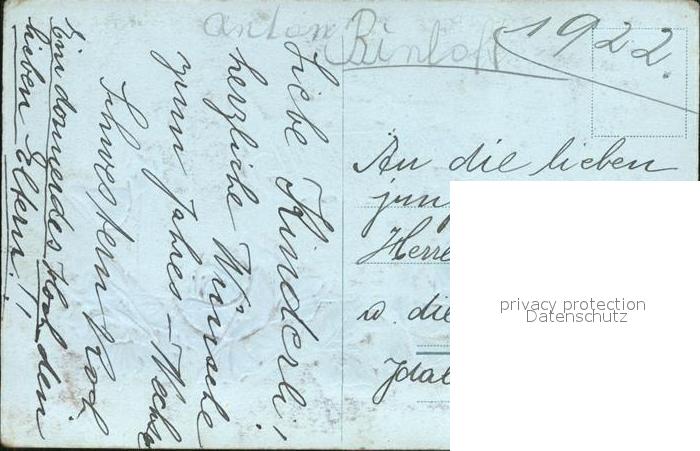 Anton Rinloff
1922.
Liebe Kinderli!
herzliche Wünsche
zum Jahres-Wechsel
Schwestern hoch
Ein donnerdes Hoch den
lieben Eltern!!
An die lieben
jun
Herre
u. die
Idal
privacy protection
Datenschutz